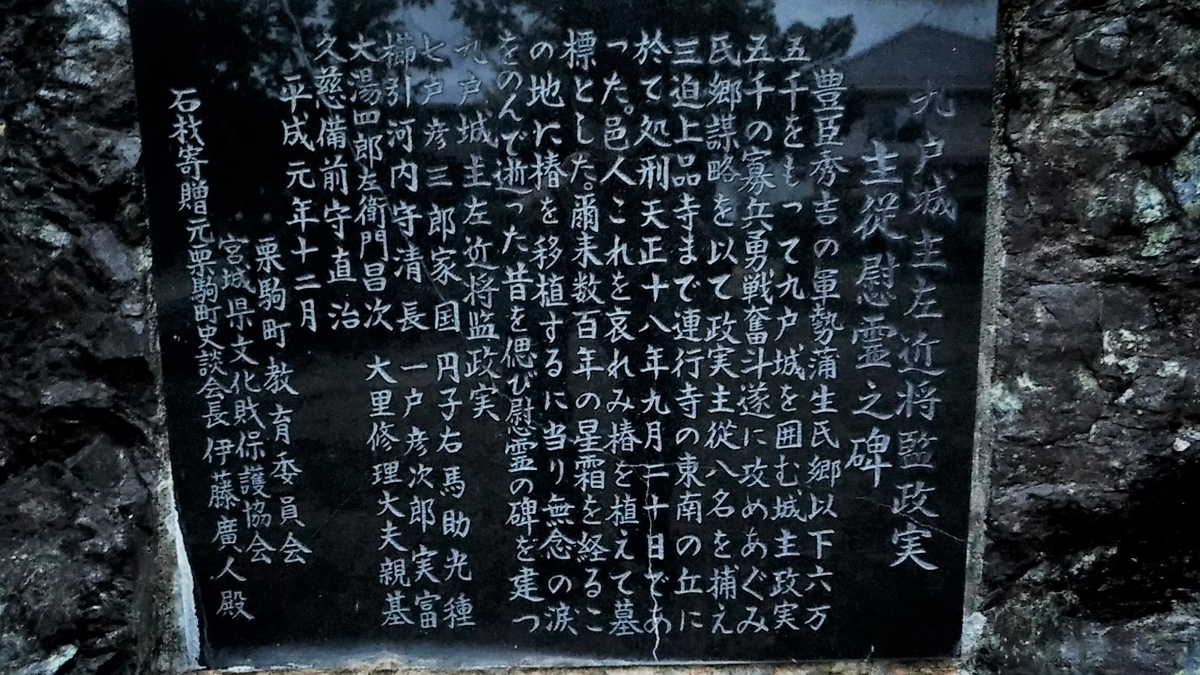 九戸城主左近将監政実
主従慰霊之碑
豊臣秀吉の軍勢蒲生氏郷以下六万
五千をもって九戸城を囲む城主政実
五千の寡兵勇戦奮斗遂に攻めあぐみ
氏郷謀略を以て政実主従八名を捕え
三迫上品寺まで連行寺の東南の丘に
於て処刑天正十八年九月二十日であ
った。邑人これを哀れみ椿を植えて墓
標とした。爾来数百年の星霜を経るこ
の地に椿を移植するに当り無念の涙
をのんで逝った昔を偲び慰霊の碑を建つ
九戸城主左近将監政実
七戸彦三郎家国 円子右馬助光種
櫛引河内守清長 一戸彦次郎実富
大湯四郎左衛門昌次 大里修理大夫親基
久慈備前守直治
平成元年十二月
栗駒町教育委員会
宮城県文化財保護協会
石材寄贈元栗駒町史談会長伊藤廣人殿